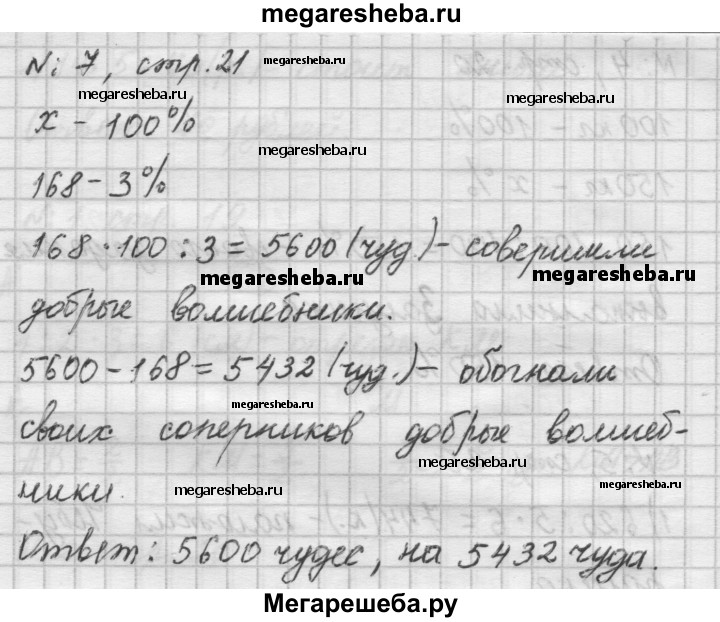 megaresheba.ru
№ 7, стр. 21 megaresheba.ru
megaresheba.ru megaresheba.ru
x - 100%
megaresheba.ru
168 - 3%
168 · 100 : 3 = 5600 (чуд.) - совершили
megaresheba.ru megaresheba.ru
добрые волшебники.
5600 - 168 = 5432 (чуд.) - обогнали
megaresheba.ru
своих соперников добрые волшеб-
megaresheba.ru
ники.
megaresheba.ru megaresheba.ru
Ответ: 5600 чудес, на 5432 чуда.
Мегарешеба.ру